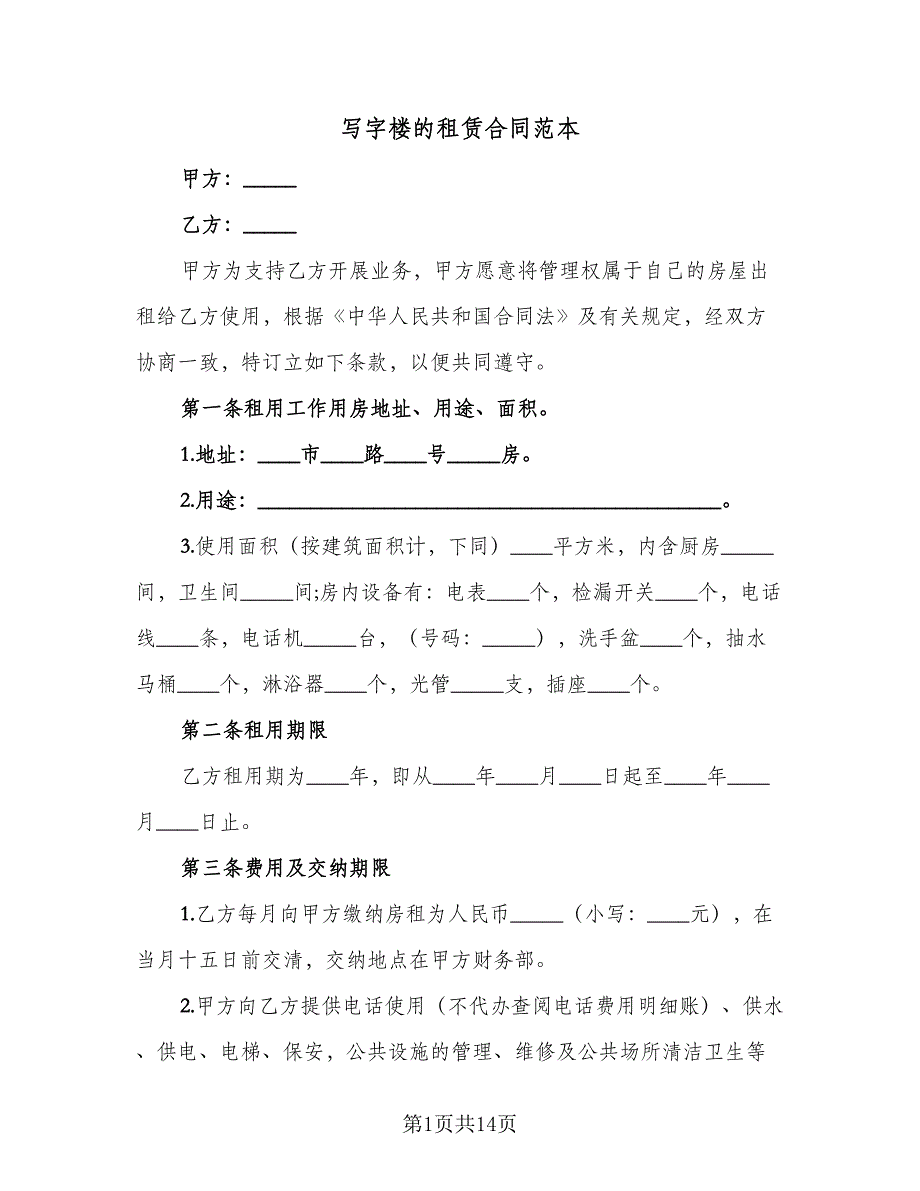 写字楼的租赁合同范本
甲方：_____
乙方：_____
甲方为支持乙方开展业务，甲方愿意将管理权属于自己的房屋出
租给乙方使用，根据《中华人民共和国合同法》及有关规定，经双方
协商一致，特订立如下条款，以便共同遵守。
第一条租用工作用房地址、用途、面积。
1.地址：____市____路____号_____房。
2.用途：____________________________________________。
3.使用面积（按建筑面积计，下同）____平方米，内含厨房_____
间，卫生间_____间;房内设备有：电表____个，检漏开关____个，电话
线____条，电话机_____台，（号码：_____），洗手盆____个，抽水
马桶____个，淋浴器____个，光管_____支，插座____个。
第二条租用期限
乙方租用期为____年，即从____年____月____日起至____年____
月____日止。
第三条费用及交纳期限
1.乙方每月向甲方缴纳房租为人民币_____（小写：____元），在
当月十五日前交清，交纳地点在甲方财务部。
2.甲方向乙方提供电话使用（不代办查阅电话费用明细账）、供水
、供电、电梯、保安，公共设施的管理、维修及公共场所清洁卫生等
第1页共14页